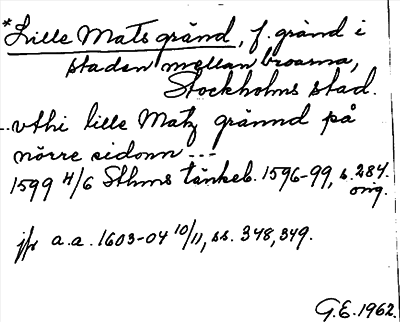 *Lille Mats gränd, f. gränd i
staden mellan broarna,
Stockholms stad.
...vthi lille Matz grännd på
nörre sidonn ...
1599 4/6 Sthms tänkeb. 1596-99, s. 284.
orig.
jfr a.a. 1603-04 10/11, ss. 348, 349.
G.E. 1962.